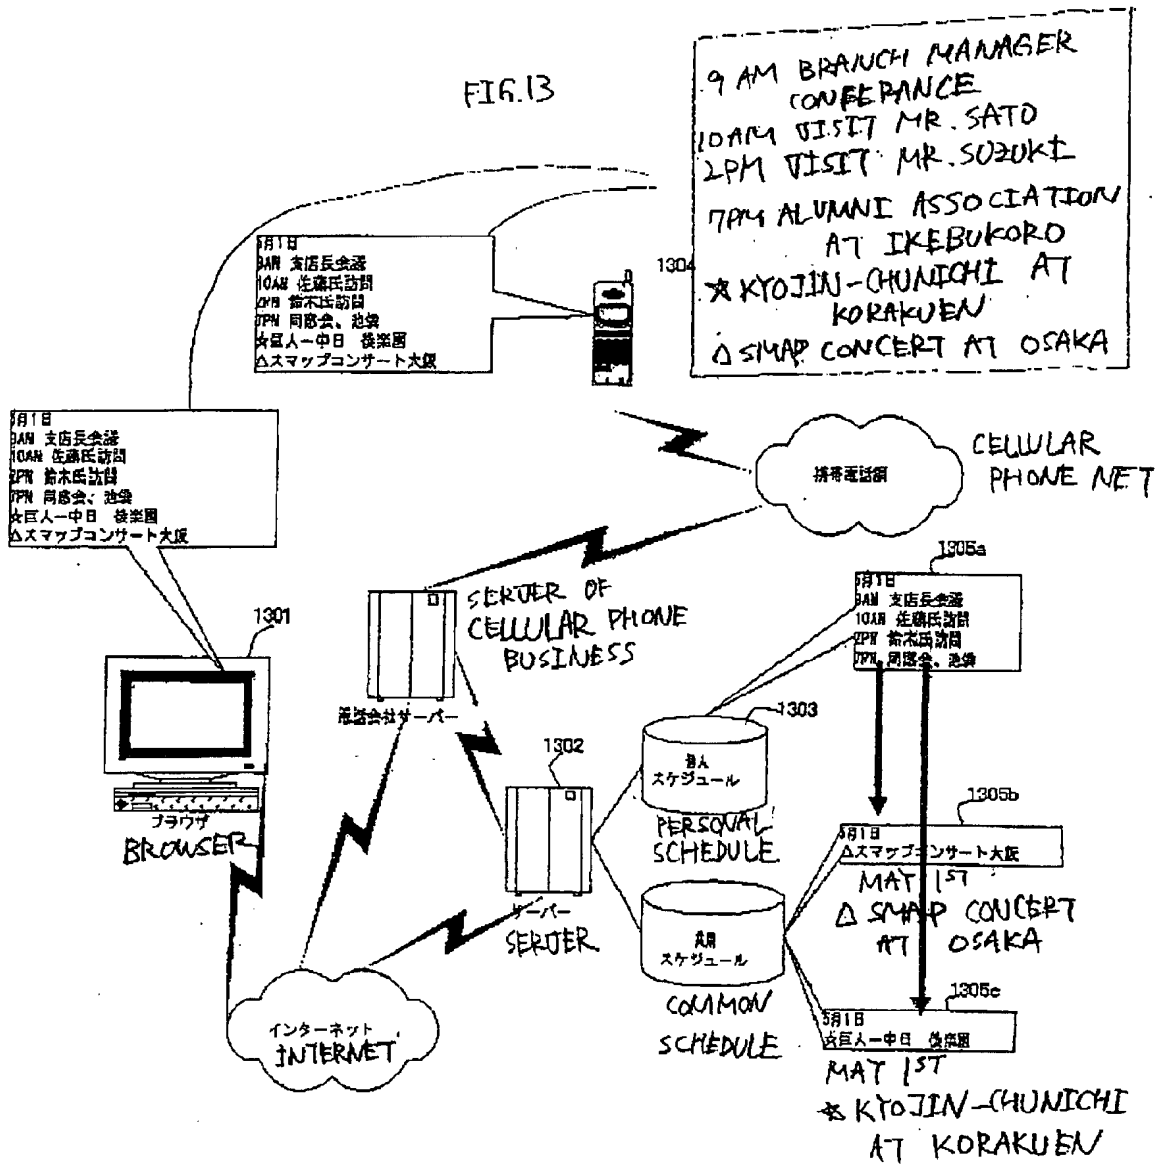 FIG.13
9 AM BRANCH MANAGER
CONFERANCE
10AM VISIT MR. SATO
2PM VISIT MR. SUZUKI
7PM ALUMNI ASSOCIATION
AT IKEBUKORO
☆KYOJIN-CHUNICHI AT
KORAKUEN
△SMAP CONCERT AT OSAKA
1304
5月1日
9AM 支店長会議
10AM 佐藤氏訪問
2PM 鈴木氏訪問
7PM 同窓会、池袋
☆巨人ー中日 後楽園
△スマップコンサート大阪
5月1日
9AM 支店長会議
10AM 佐藤氏訪問
2PM 鈴木氏訪問
7PM 同窓会、池袋
☆巨人ー中日 後楽園
△スマップコンサート大阪
携帯電話網
CELLULAR
PHONE NET
1301
ブラウザ
BROWSER
SERVER OF
CELLULAR PHONE
BUSINESS
電話会社サーバー
1302
サーバー
SERVER
インターネット
INTERNET
1303
個人
スケジュール
PERSONAL
SCHEDULE
共用
スケジュール
COMMON
SCHEDULE
1305a
5月1日
9AM 支店長会議
10AM 佐藤氏訪問
2PM 鈴木氏訪問
7PM 同窓会、池袋
1305b
5月1日
△スマップコンサート大阪
MAY 1ST
△ SMAP CONCERT
AT OSAKA
1305c
5月1日
☆巨人ー中日 後楽園
MAY 1ST
☆ KYOJIN-CHUNICHI
AT KORAKUEN